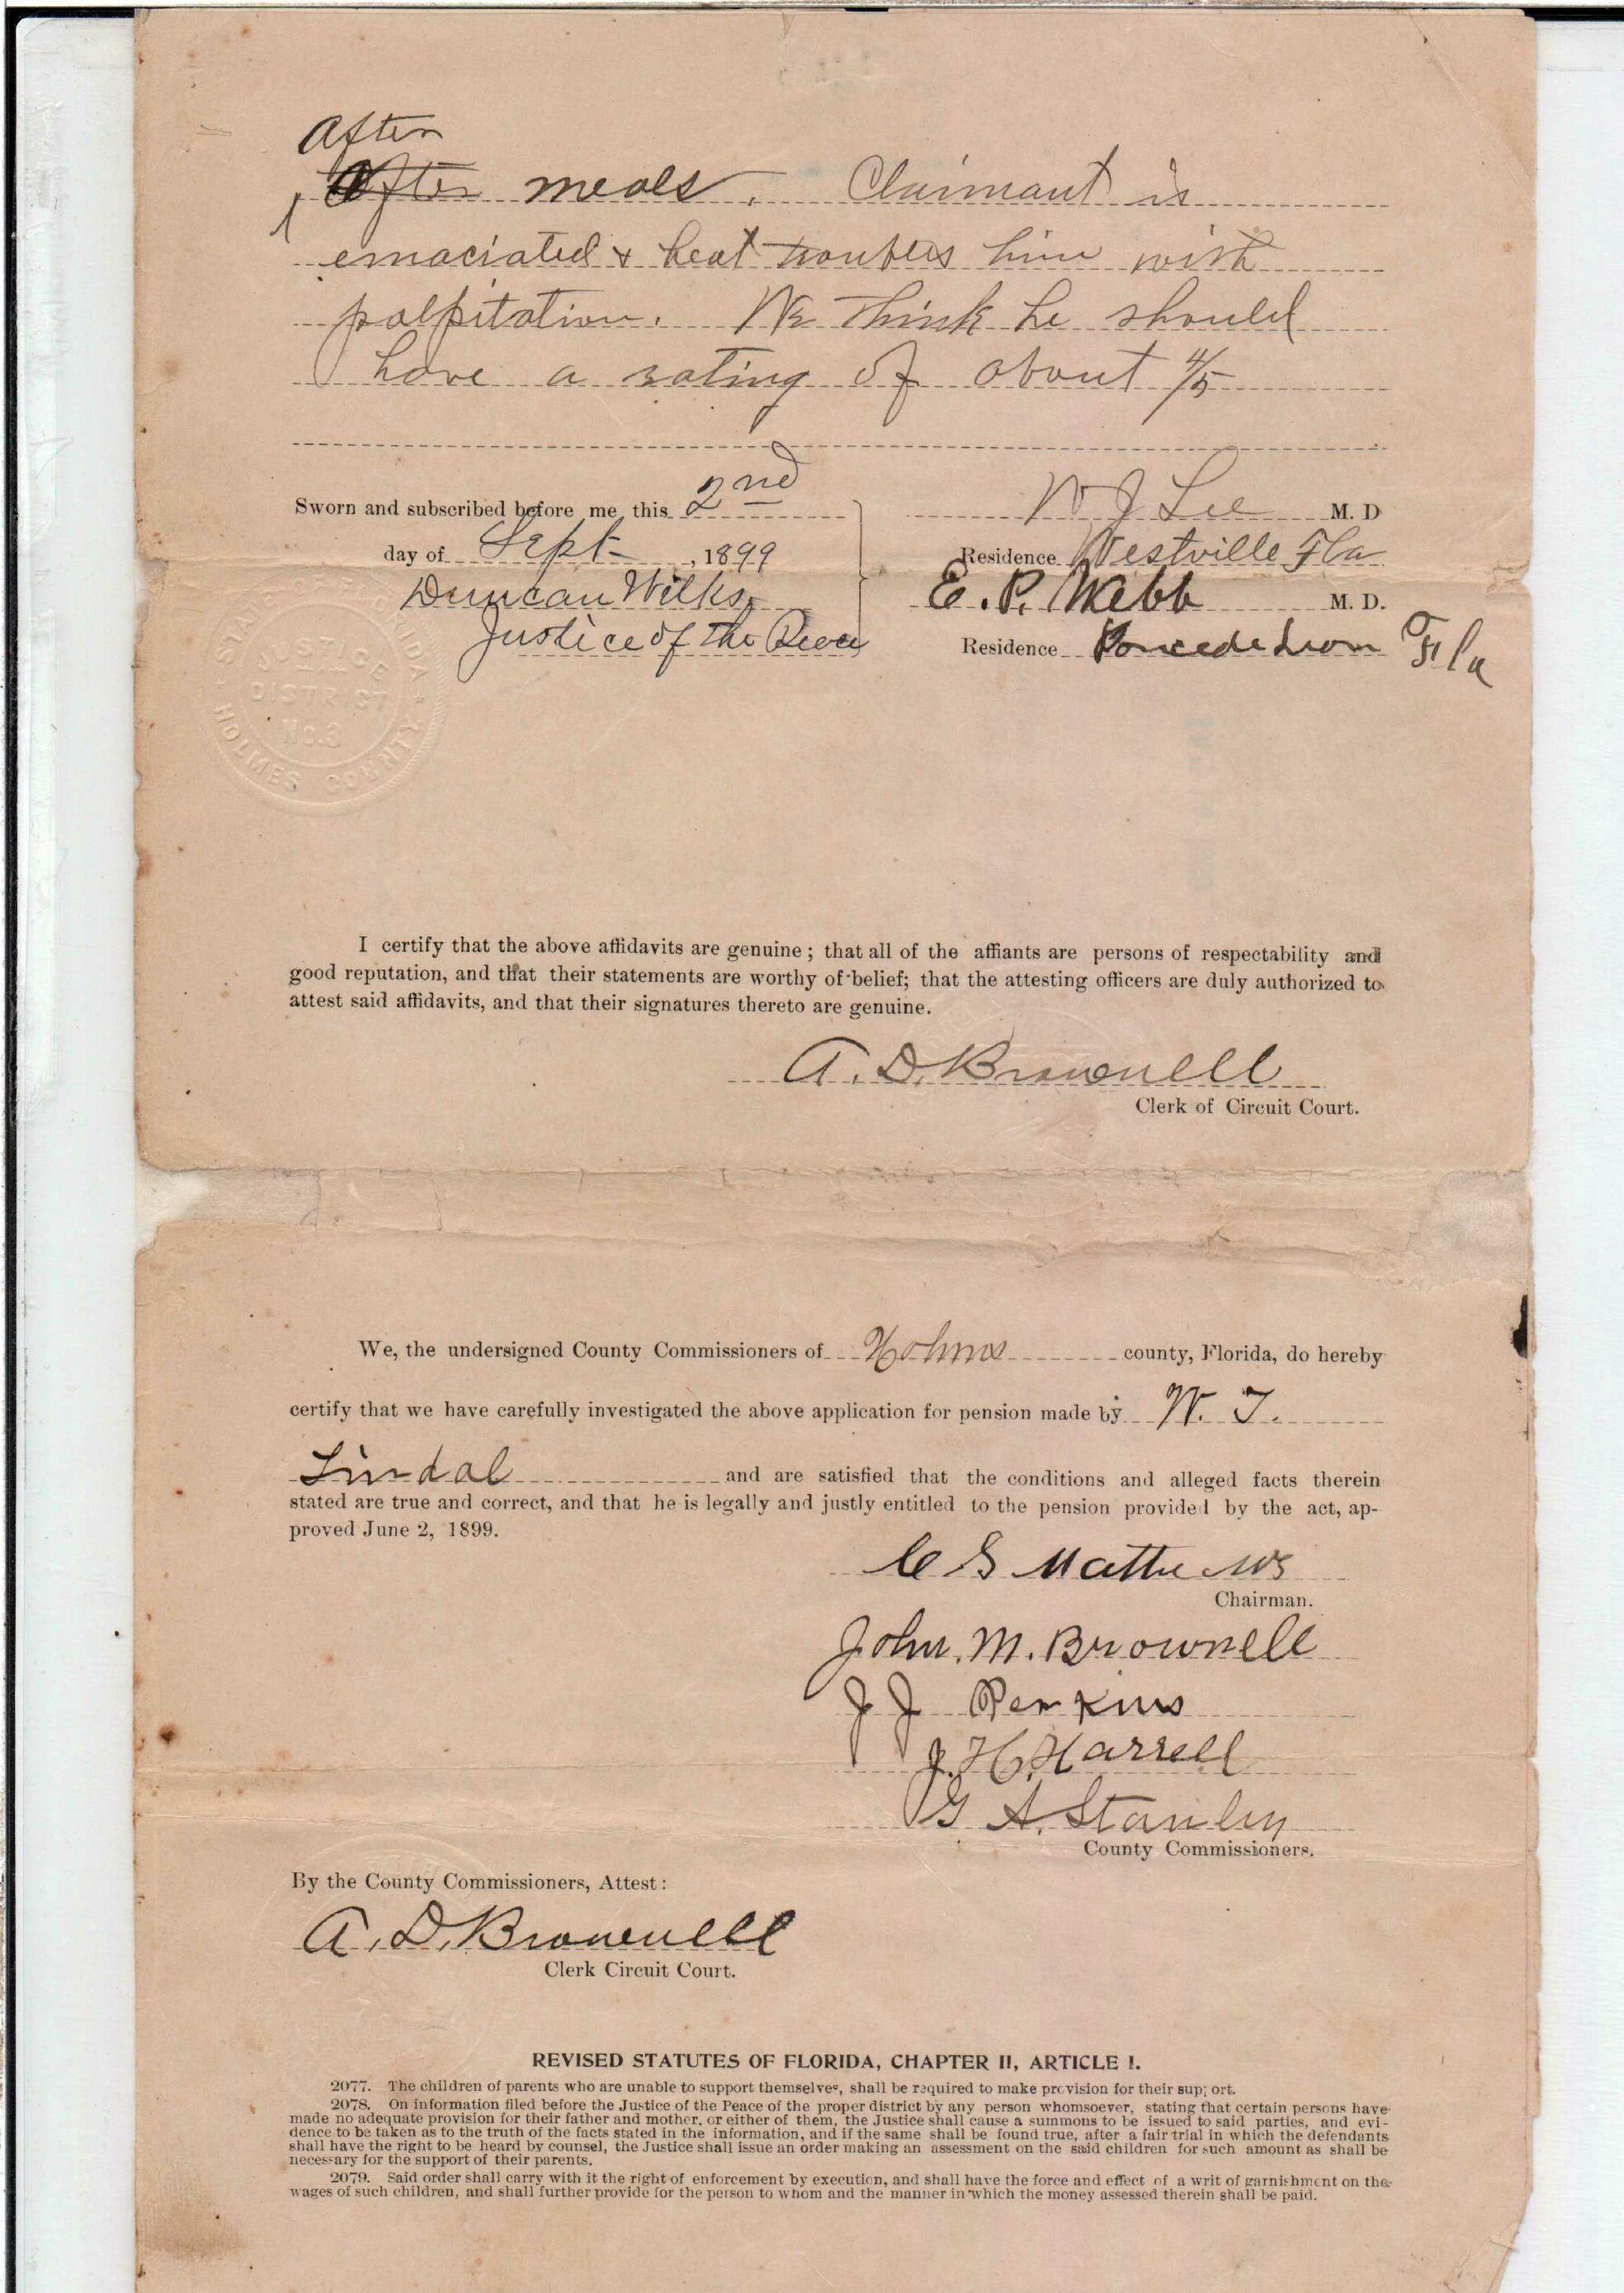 After
After meals. Claimant is
emaciated & heat troubles him with
palpitation. We think he should
have a rating of about 4/5
Sworn and subscribed before me this 2nd
day of Sept , 1899
Duncan Wilks
Justice of the Peace
W J Lee M. D
Residence Westville Fla
E. P. Webb M. D.
Residence Poncede Leon Fla
STATE FLORIDA
JUSTICE
DISTRICT
NO.3
HOLMES COUNTY
I certify that the above affidavits are genuine; that all of the affiants are persons of respectability and
good reputation, and that their statements are worthy of belief; that the attesting officers are duly authorized to
attest said affidavits, and that their signatures thereto are genuine.
A. D. Brownell
Clerk of Circuit Court.
We, the undersigned County Commissioners of Holmes county, Florida, do hereby
certify that we have carefully investigated the above application for pension made by W. T.
Lindal and are satisfied that the conditions and alleged facts therein
stated are true and correct, and that he is legally and justly entitled to the pension provided by the act, ap-
proved June 2, 1899.
C S Matthews
Chairman.
John. M. Brownell
J J Perkins
J. H. Harrell
G A. Stanley
County Commissioners.
By the County Commissioners, Attest:
A. D. Brownell
Clerk Circuit Court.
REVISED STATUTES OF FLORIDA, CHAPTER II, ARTICLE I.
2077. The children of parents who are unable to support themselves, shall be required to make provision for their sup ort.
2078. On information filed before the Justice of the Peace of the proper district by any person whomsoever, stating that certain persons have
made no adequate provision for their father and mother, or either of them, the Justice shall cause a summons to be issued to said parties, and evi-
dence to be taken as to the truth of the facts stated in the information, and if the same shall be found true, after a fair trial in which the defendants
shall have the right to be heard by counsel, the Justice shall issue an order making an assessment on the said children for such amount as shall be
necessary for the support of their parents.
2079. Said order shall carry with it the right of enforcement by execution, and shall have the force and effect of a writ of garnishment on the
wages of such children, and shall further provide for the person to whom and the manner in which the money assessed therein shall be paid.